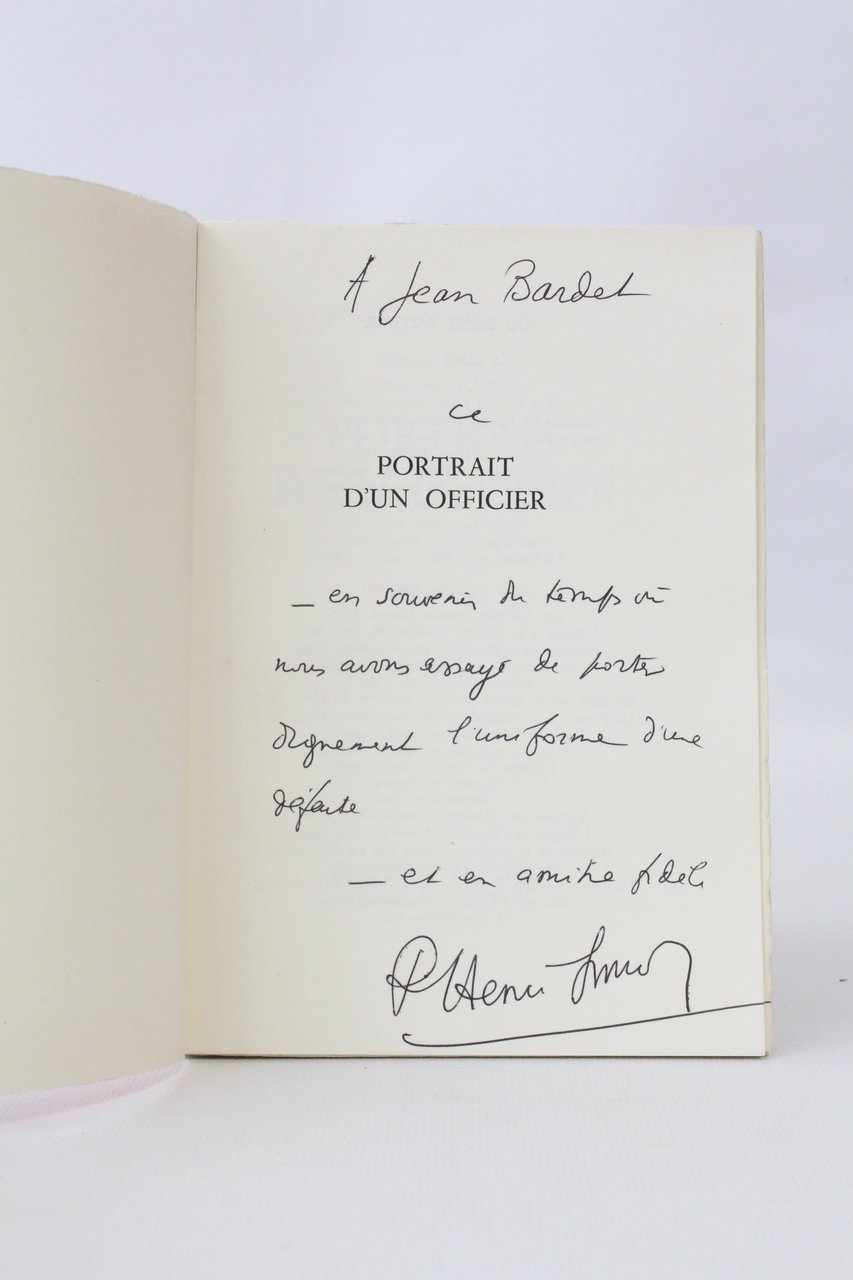 A Jean Bardet
ce
PORTRAIT
D'UN OFFICIER
— en souvenir du temps où
nous avons essayé de porter
dignement l'uniforme d'une
défaite
— et en amitié fidèle
P. Henri Simon